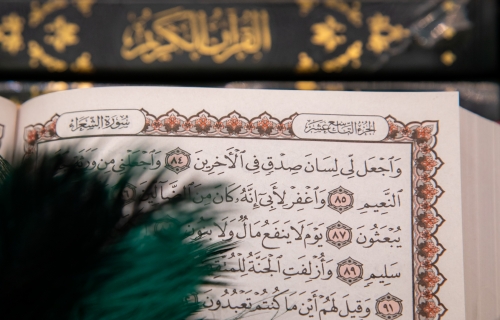 القرآن الكريم
سورة الشعراء
الجزء التاسع عشر
وَٱجْعَل لِّي لِسَانَ صِدْقٍ فِي ٱلْءَاخِرِينَ ٨٤ وَٱجْعَلْنِي مِن
ٱلنَّعِيمِ ٨٥ وَٱغْفِرْ لِأَبِيٓ إِنَّهُۥ كَانَ مِنَ
يُبْعَثُونَ ٨٧ يَوْمَ لَا يَنفَعُ مَالٌ وَلَا بَنُونَ
سَلِيمٍ ٨٩ وَأُزْلِفَتِ ٱلْجَنَّةُ
٩١ وَقِيلَ لَهُمْ أَيْنَ مَا كُنتُمْ تَعْبُدُونَ